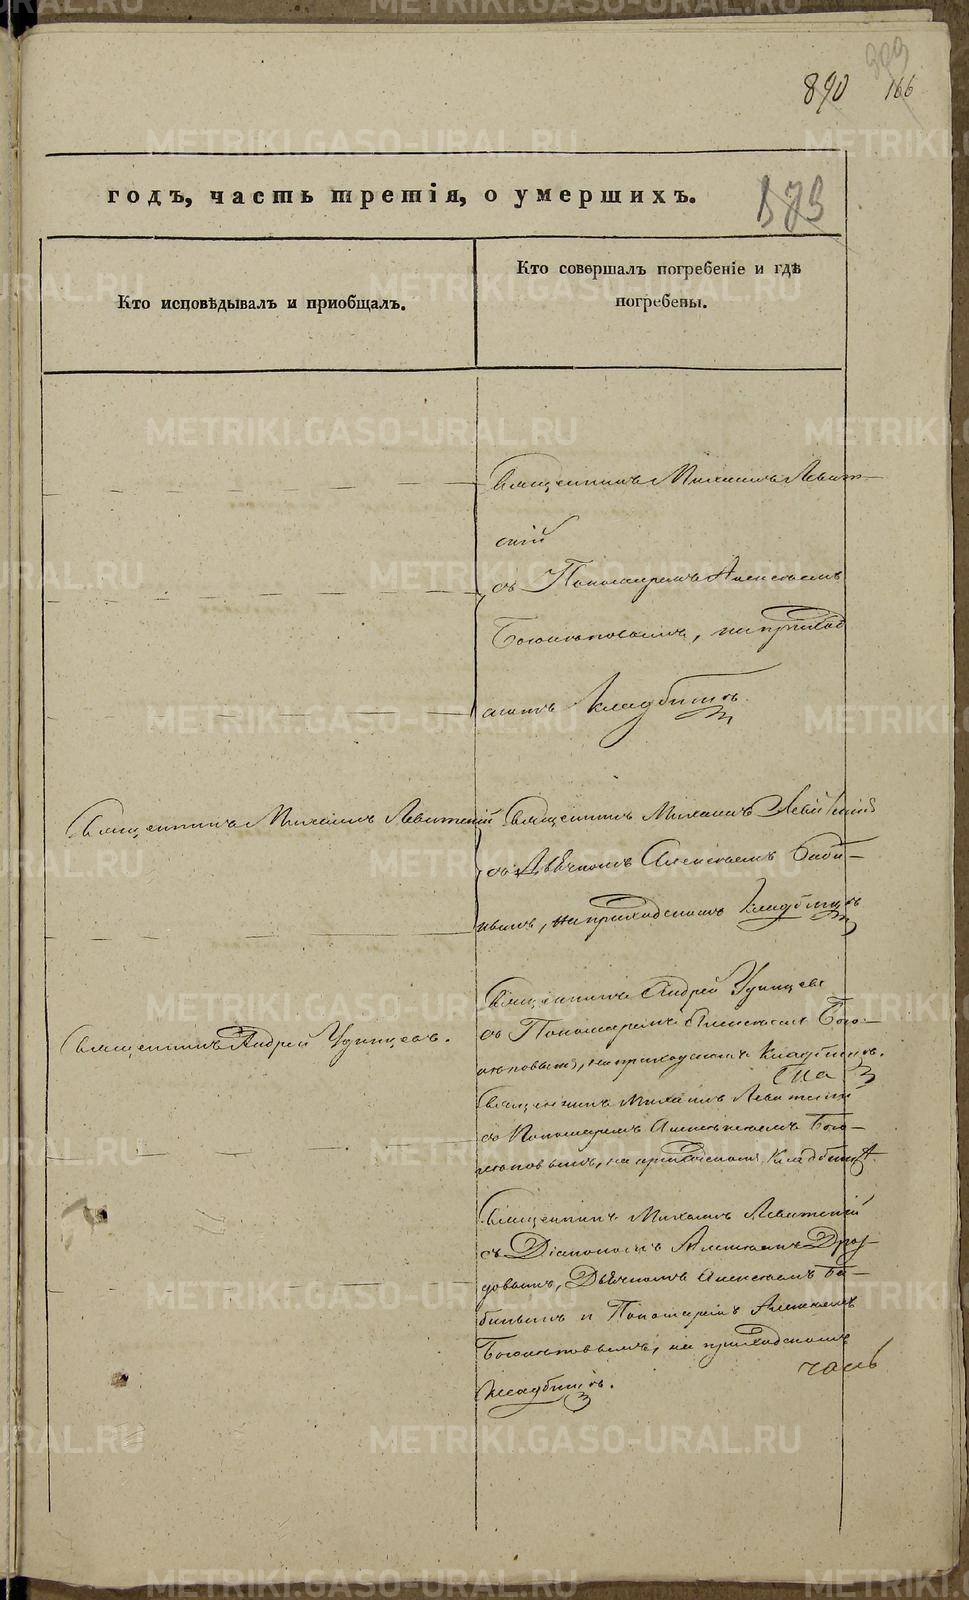 METRIKI.GASO-URAL.RU
890
166
годъ, часть третія, о умершихъ.
Кто исповѣдывалъ и приобщалъ.
Кто совершалъ погребеніе и гдѣ
погребены.
Священникъ Михаилъ Левит-
скій
съ Пономаремъ Алексѣемъ
на приход
скомъ Кладбищѣ.
Священникъ Михаилъ Левитскій
Священникъ Михаилъ Левитскій
съ Дьячкомъ Алексѣемъ Баби-
нымъ, на приходскомъ Кладбищѣ
Священникъ Андрей Удинцевъ
Священникъ Андрей Удинцевъ.
съ Пономаремъ Алексѣемъ Бого-
на приходскомъ Кладбищѣ.
Священникъ Михаилъ Левитскій
съ Пономаремъ Алексѣемъ Бого-
на приходскомъ Кладбищѣ.
Священникъ Михаилъ Левитскій
съ Діакономъ
Дьячкомъ Алексѣемъ Ба-
бинымъ и Пономаремъ Алексѣемъ
на приходскомъ
Кладбищѣ.